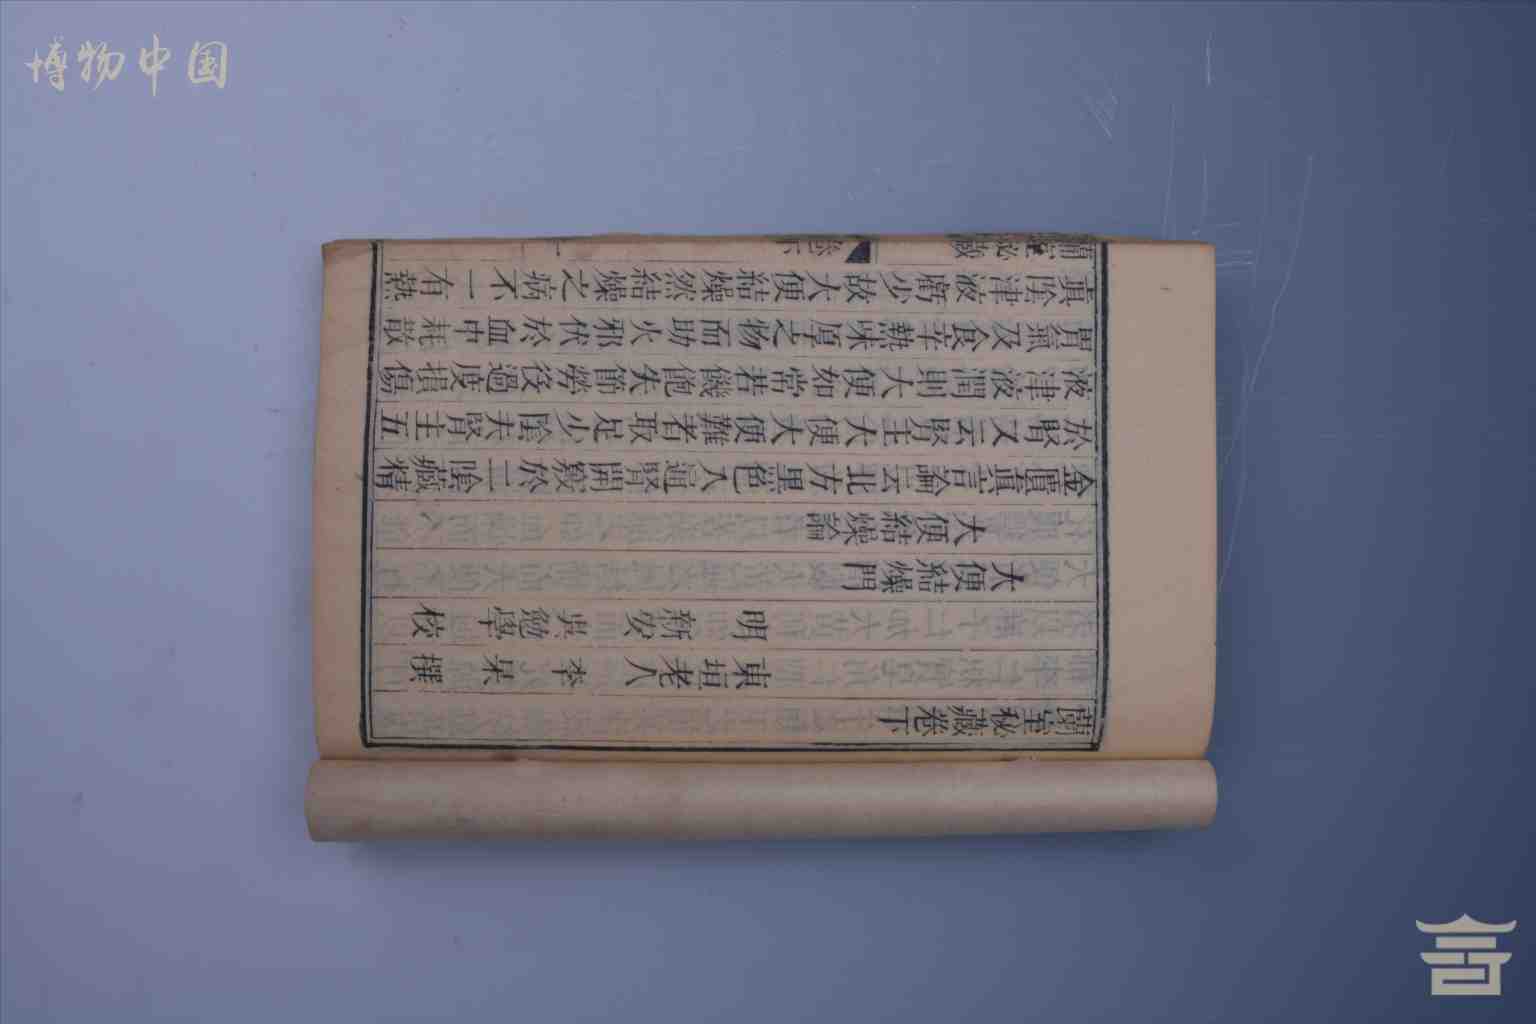 博物中国
蘭室秘藏卷下
東垣老人 李 杲 撰
明 新安 吳勉學 校
大便結燥門
大便結燥論
金匱眞言論云北方黑色入通腎開竅於二陰藏精
於腎又云腎主大便大便難者取足少陰夫腎主五
液津液潤則大便如常若饑飽失節勞後過度損傷
胃氣及食辛熱味厚之物而助火邪伏於血中耗散
眞陰津液虧少故大便結燥然結燥之病不一有熱
蘭室秘藏 卷下 一